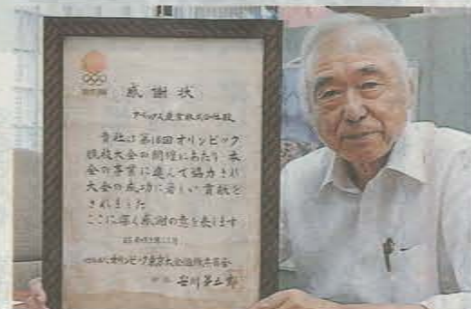 感謝状
産業株式会社殿
貴社は第18回オリンピック
競技大会の開催にあたり 本
会の事業に進んで協力され
大会の成功に著しい貢献を
されました
ここに深く感謝の意を表します
オリンピック東京大会組織委員会
会長 安川第五郎